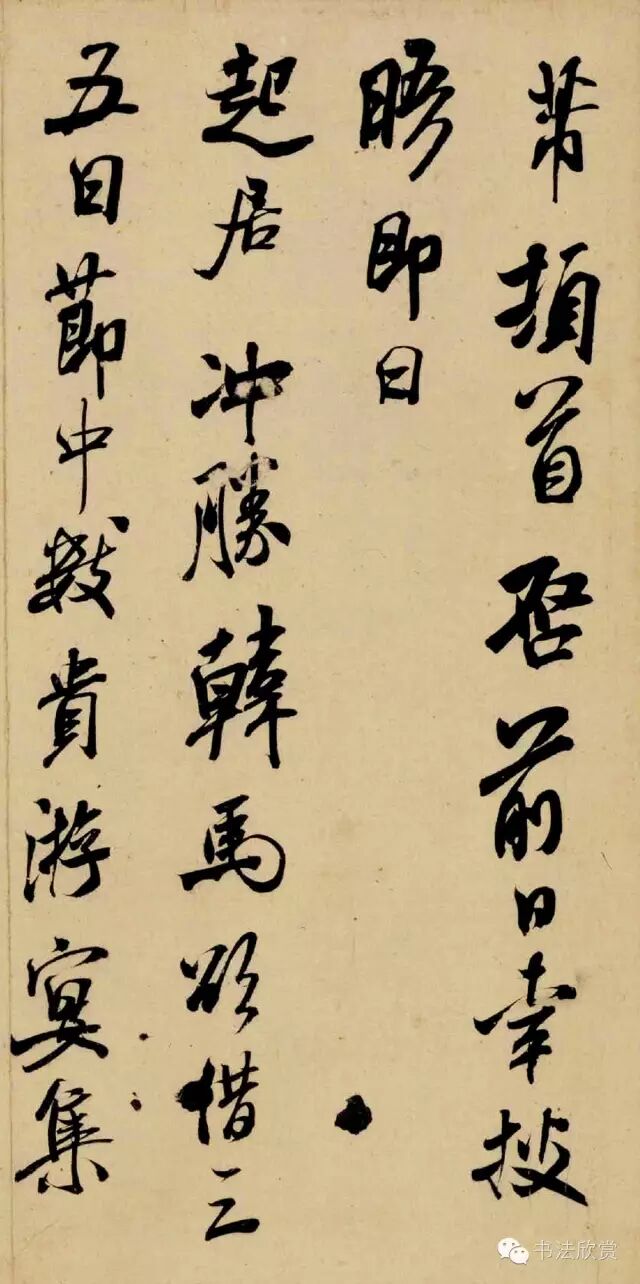 芾頓首启前日幸披
晤即日
起居冲勝韓馬欲借三
五日節中數貴游宴集
书法欣赏